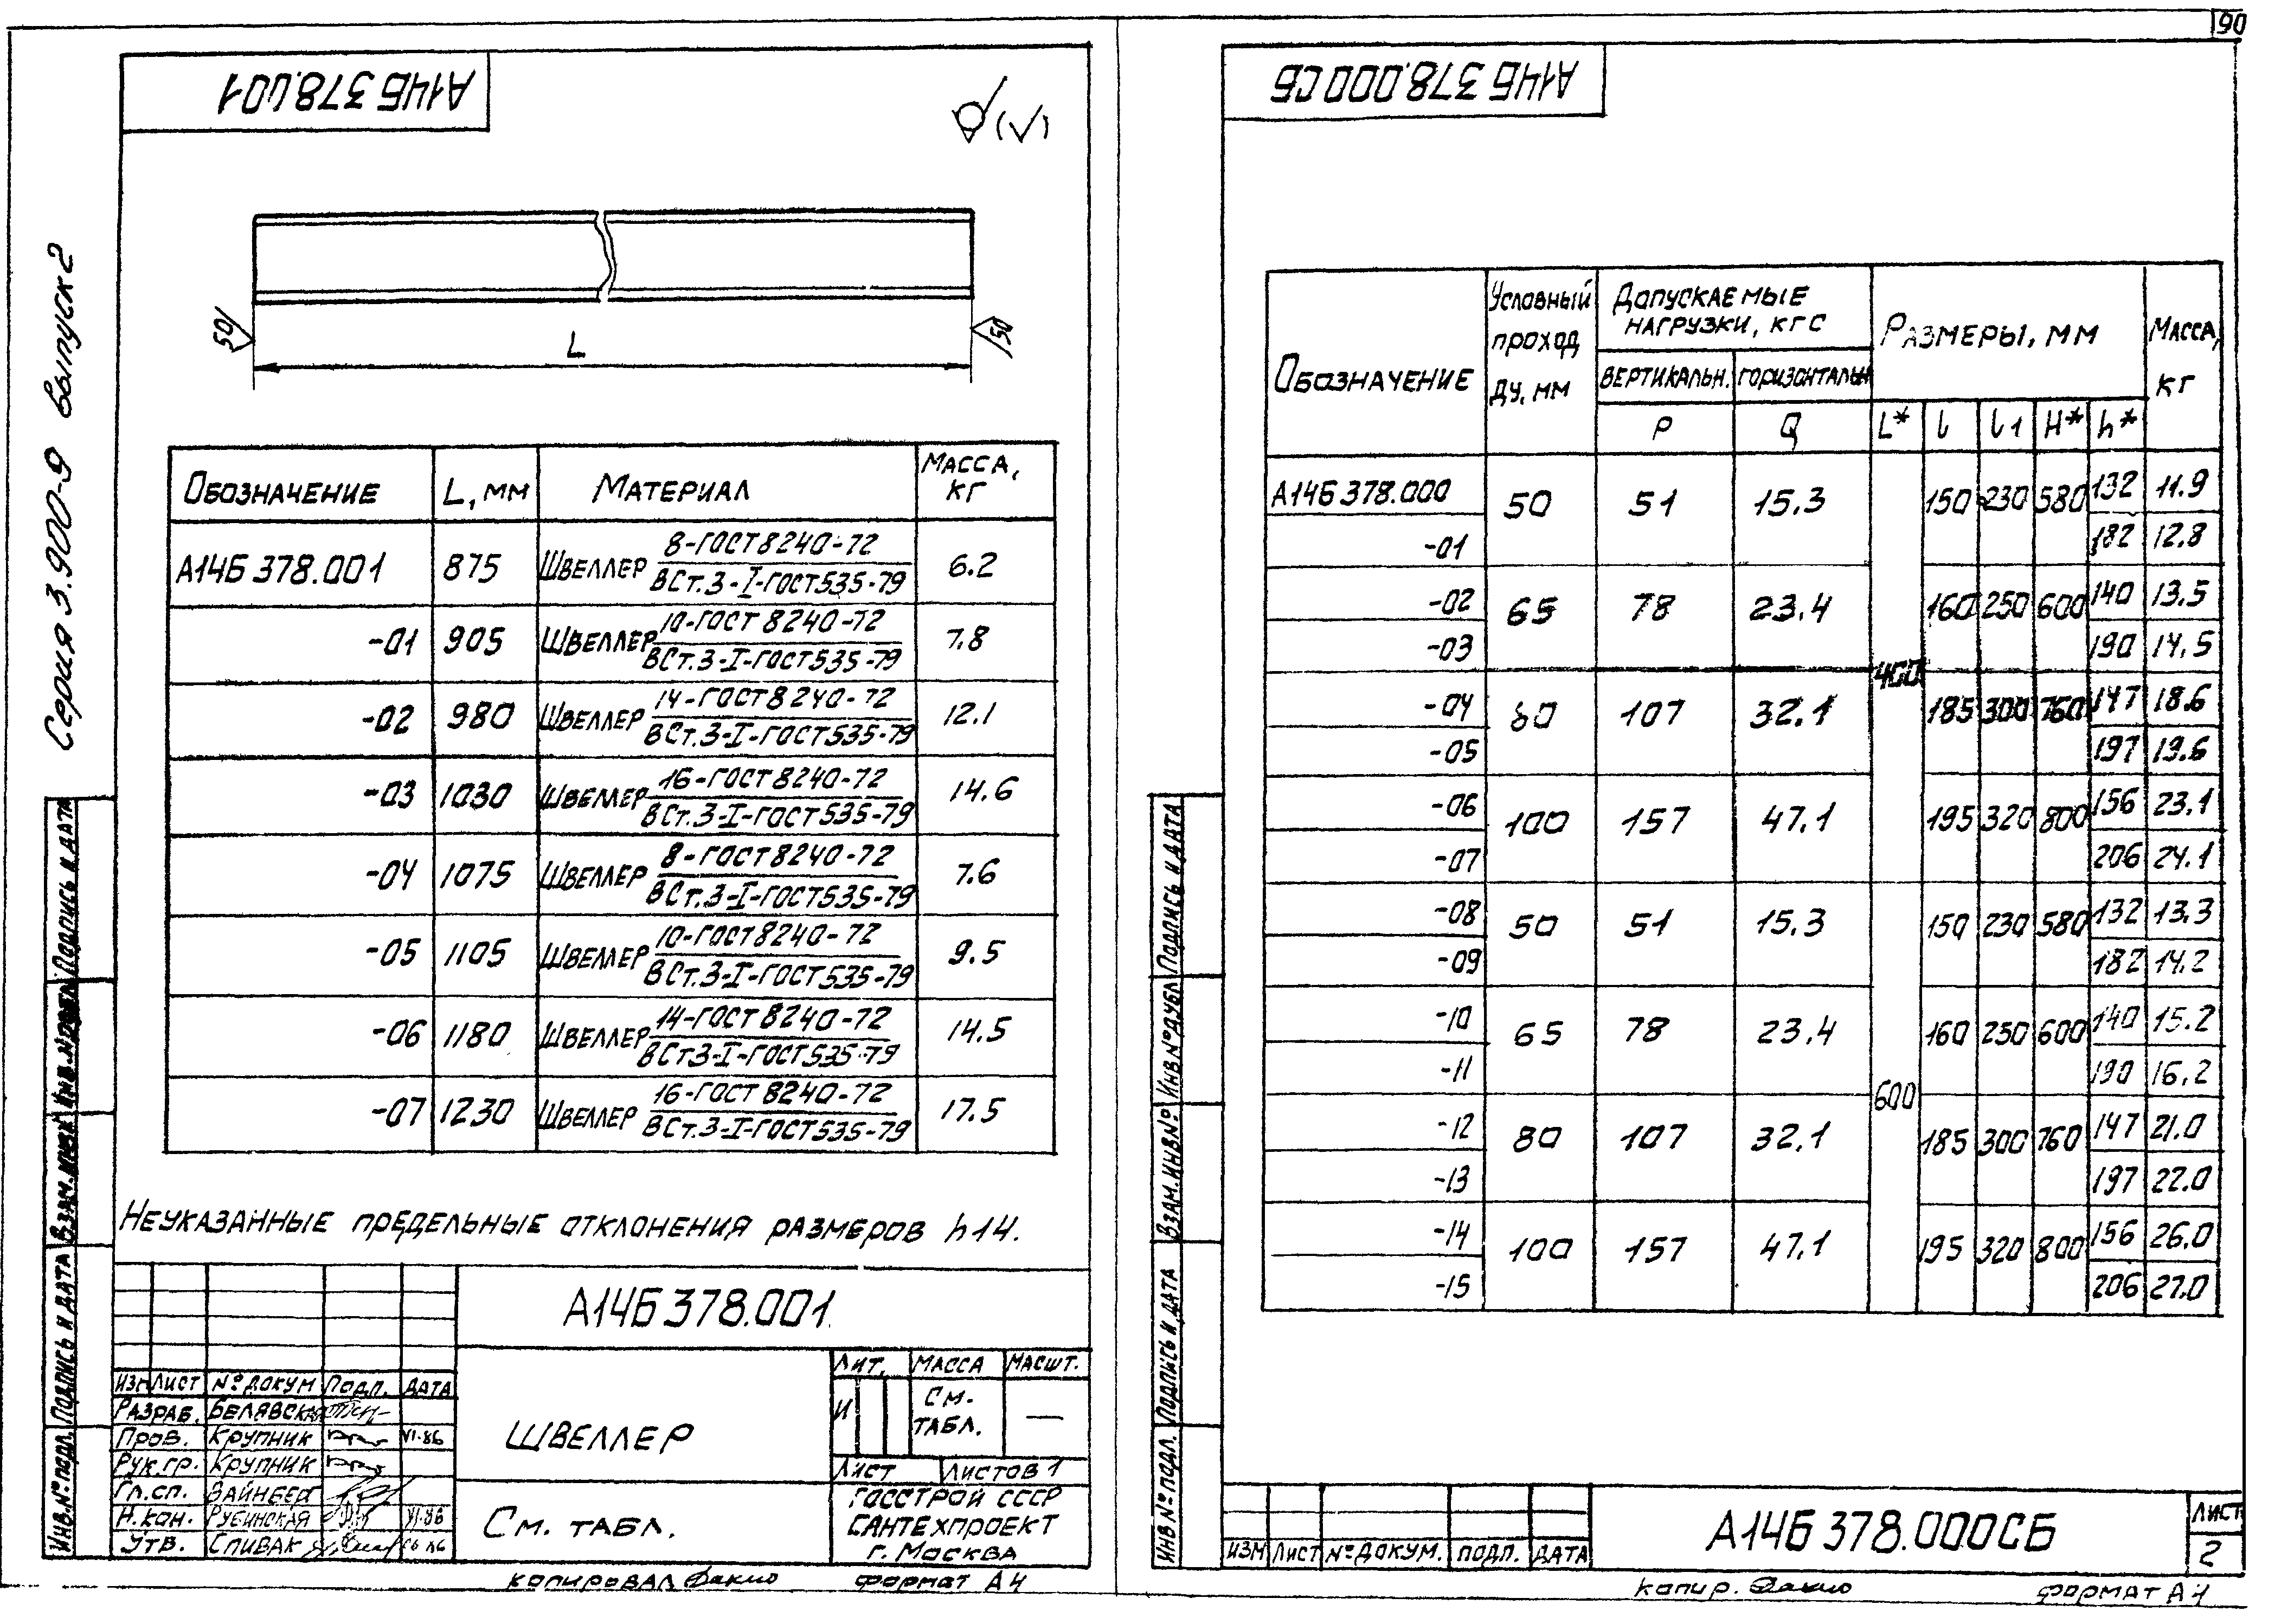 90
А14Б 378.001
(√)
50
50
L
Серия 3.900-9 выпуск 2
Обозначение | L, мм | Материал | Масса, кг
А14Б 378.001 | 875 | Швеллер 8-ГОСТ 8240-72 / ВСт.3-I-ГОСТ 535-79 | 6.2
-01 | 905 | Швеллер 10-ГОСТ 8240-72 / ВСт.3-I-ГОСТ 535-79 | 7.8
-02 | 980 | Швеллер 14-ГОСТ 8240-72 / ВСт.3-I-ГОСТ 535-79 | 12.1
-03 | 1030 | Швеллер 16-ГОСТ 8240-72 / ВСт.3-I-ГОСТ 535-79 | 14.6
-04 | 1075 | Швеллер 8-ГОСТ 8240-72 / ВСт.3-I-ГОСТ 535-79 | 7.6
-05 | 1105 | Швеллер 10-ГОСТ 8240-72 / ВСт.3-I-ГОСТ 535-79 | 9.5
-06 | 1180 | Швеллер 14-ГОСТ 8240-72 / ВСт3-I-ГОСТ 535-79 | 14.5
-07 | 1230 | Швеллер 16-ГОСТ 8240-72 / ВСт.3-I-ГОСТ 535-79 | 17.5
Неуказанные предельные отклонения размеров h14.
Инв.№ подл. Подпись и дата Взам.инв.№ Инв.№ дубл Подпись и дата
А14Б 378.001
Изм Лист № докум Подп. Дата
Разраб. Белявская
Пров. Крупник VI-86
Рук.гр. Крупник
Гл.сп. Вайнберг
Н.кон. Рубинская VI.86
Утв. Спивак
Швеллер
См. табл.
Лит. Масса Масшт.
И См. табл. —
Лист Листов 1
Госстрой СССР
Сантехпроект
г. Москва
Копировал формат А4
А14Б 378.000СБ
Обозначение | Условный проход Ду, мм | Допускаемые нагрузки, кгс | Размеры, мм | Масса, кг
вертикальн. | горизонтальн
P | Q | L* | l | l1 | H* | h*
А14Б 378.000 | 50 | 51 | 15.3 | 400 | 150 | 230 | 580 | 132 | 11.9
-01 | 182 | 12.8
-02 | 65 | 78 | 23.4 | 160 | 250 | 600 | 140 | 13.5
-03 | 190 | 14.5
-04 | 80 | 107 | 32.1 | 185 | 300 | 760 | 147 | 18.6
-05 | 197 | 19.6
-06 | 100 | 157 | 47.1 | 195 | 320 | 800 | 156 | 23.1
-07 | 206 | 24.1
-08 | 50 | 51 | 15.3 | 600 | 150 | 230 | 580 | 132 | 13.3
-09 | 182 | 14.2
-10 | 65 | 78 | 23.4 | 160 | 250 | 600 | 140 | 15.2
-11 | 190 | 16.2
-12 | 80 | 107 | 32.1 | 185 | 300 | 760 | 147 | 21.0
-13 | 197 | 22.0
-14 | 100 | 157 | 47.1 | 195 | 320 | 800 | 156 | 26.0
-15 | 206 | 27.0
Инв № подл. Подпись и дата Взам.инв № Инв № дубл Подпись и дата
Изм Лист № докум. Подп. Дата
А14Б 378.000СБ
Лист
2
Копир. формат А4